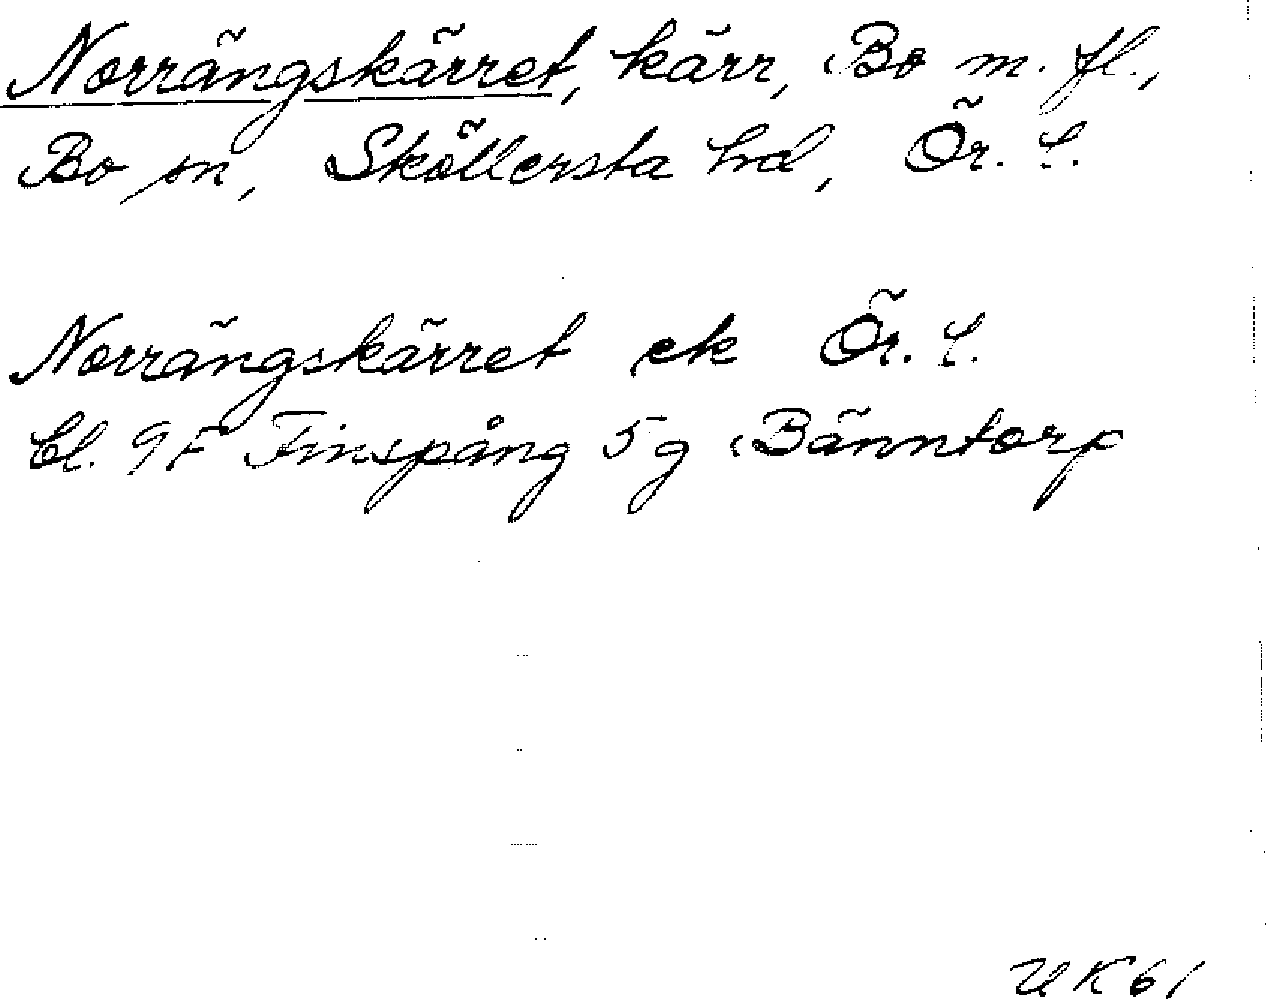 Norrängskärret, kärr, Bo m. fl.,
Bo sn, Sköllersta hd, Ör. l.
Norrängskärret ek Ör. l.
bl. 9F Finspång 5g Bänntorp
UK61